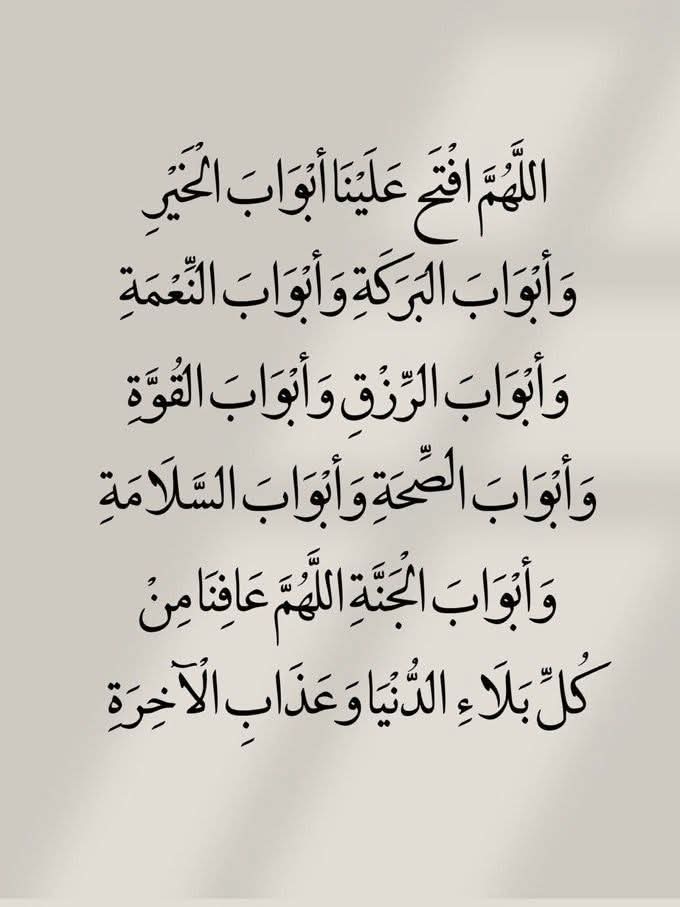 اللَّهُمَّ افْتَح عَلَيْنَا أبْوَابَ الْخَيْرِ
وَأبْوَابَ البَرَكَةِ وَأبْوَابَ النِّعْمَةِ
وَأبْوَابَ الرِّزْقِ وَأبْوَابَ القُوَّةِ
وَأبْوَابَ الصِّحَةِ وَأبْوَابَ السَّلَامَةِ
وَأبْوَابَ الْجَنَّةِ اللَّهُمَّ عَافِنَا مِنْ
كُلِّ بَلَاءِ الدُّنْيَا وَعَذَابِ الْآخِرَةِ